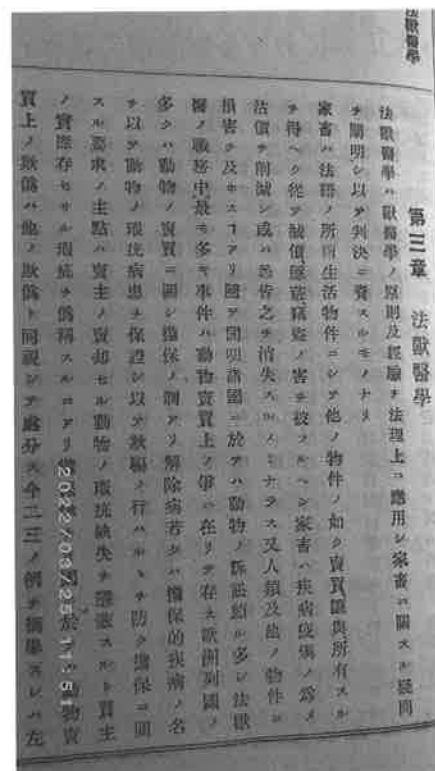 法獸醫學
第三章 法獸醫學
法獸醫學ハ獸醫學ノ原則及經驗ヲ法理上ニ應用シ家畜ニ關スル疑問
ヲ闡明シ以テ判決ニ資スルモノナリ
家畜ハ法語ノ所謂生活物件ニシテ他ノ物件ノ如ク賣買讓與所有スル
ヲ得ヘク從テ減價毀盜竊盜ノ害ヲ被フルヘシ家畜ハ疾病疫癘ノ爲メ
沽價ヲ削減シ或ハ悉皆之ヲ消失スルノミナラス又人類及他ノ物件ニ
損害ヲ及ホスコアリ開明諸國ニ於テハ動物ノ訴訟頗ル多シ法獸
醫ノ職務中最モ多キ事件ハ動物賣買上ノ爭ニ在リテ存ス歐洲列國ノ
多クハ動物ノ賣買ニ關シ擔保ノ制アリ解除病若クハ擔保的疾病ノ名
ヲ以テ動物ノ瑕疵病患ヲ保證シ以テ欺騙ノ行ハルヽヲ防ク擔保ニ關
スル要求ノ主點ハ賣主ノ賣却セル動物ノ瑕疵缺失ヲ隱蔽スルト買主
ノ實際存セサル瑕疵ヲ僞稱スルコアリ 動物賣
買上ノ欺僞ハ他ノ欺僞ト同視シテ處分ス今二三ノ例ヲ摘擧スレハ左
2022/03/25 11:51